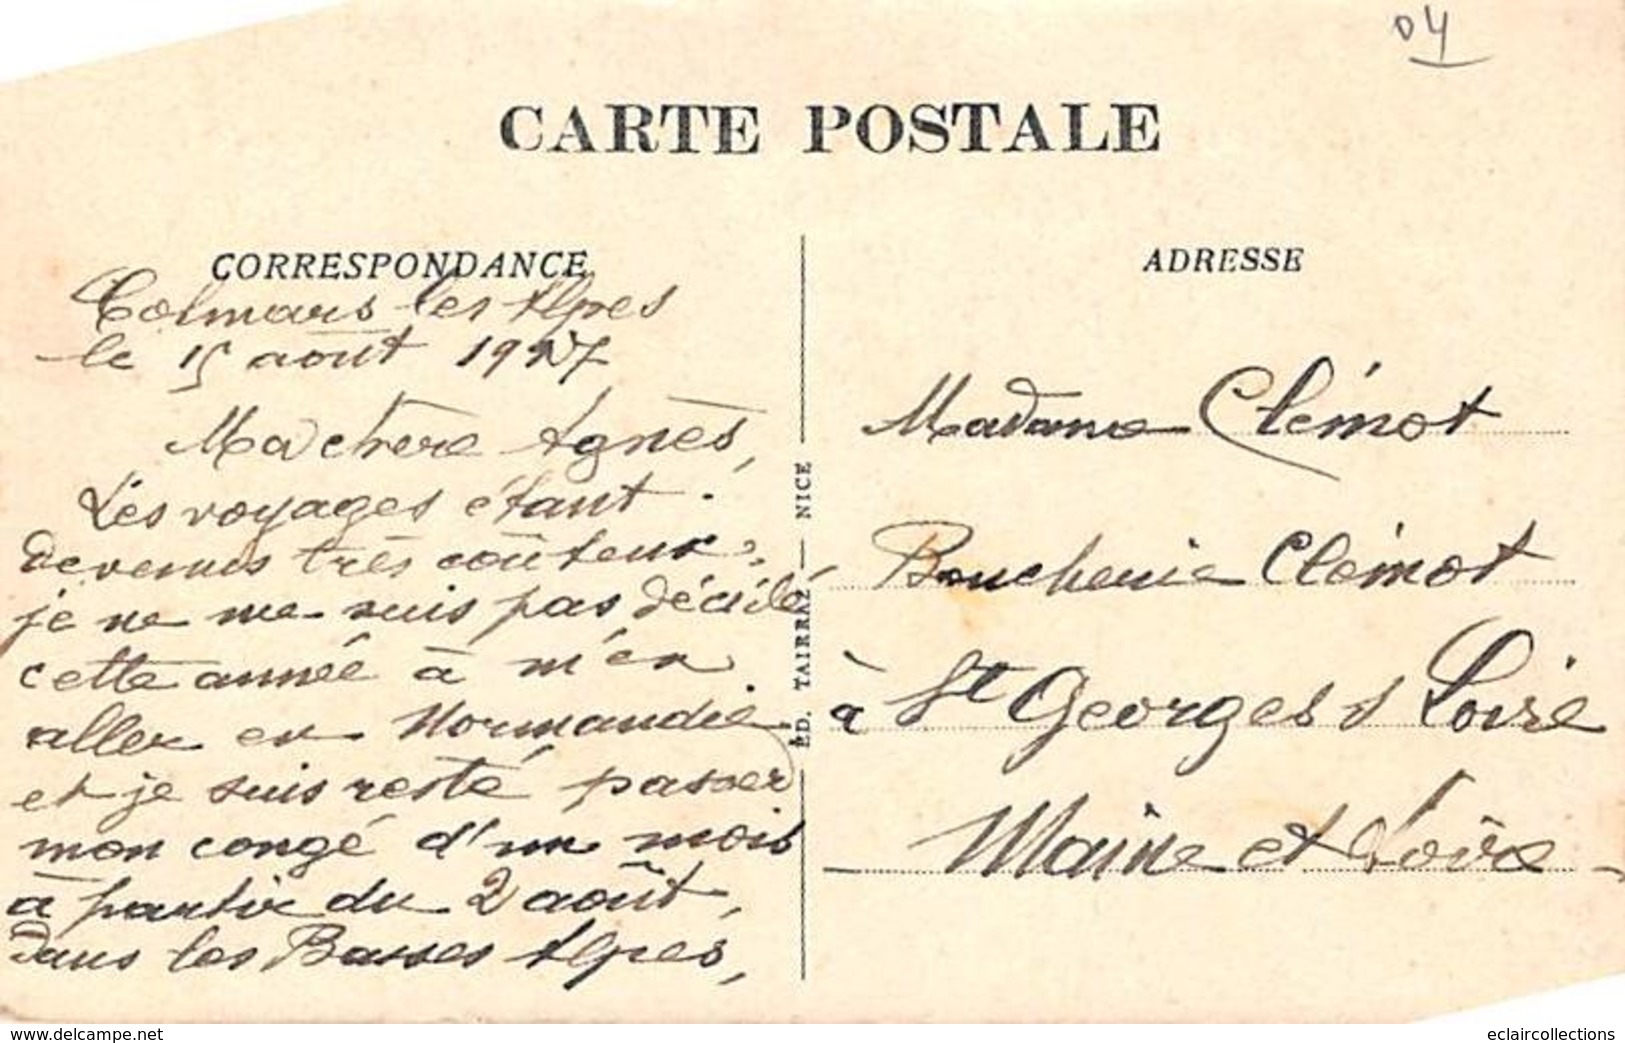 04
CARTE POSTALE
CORRESPONDANCE
Colmars les Alpes
le 15 août 1927
Ma chère Agnès,
Les voyages étant
devenus très coûteux,
je ne me suis pas décidé
cette année à m'en
aller en Normandie
et je suis resté passer
mon congé d'un mois
à partir du 2 août,
dans les Basses Alpes,
ÉD. TAIRRAZ — NICE
ADRESSE
Madame Clémot
Boucherie Clémot
à St Georges s Loire
Maine et Loire
www.delcampe.net
eclaircollections